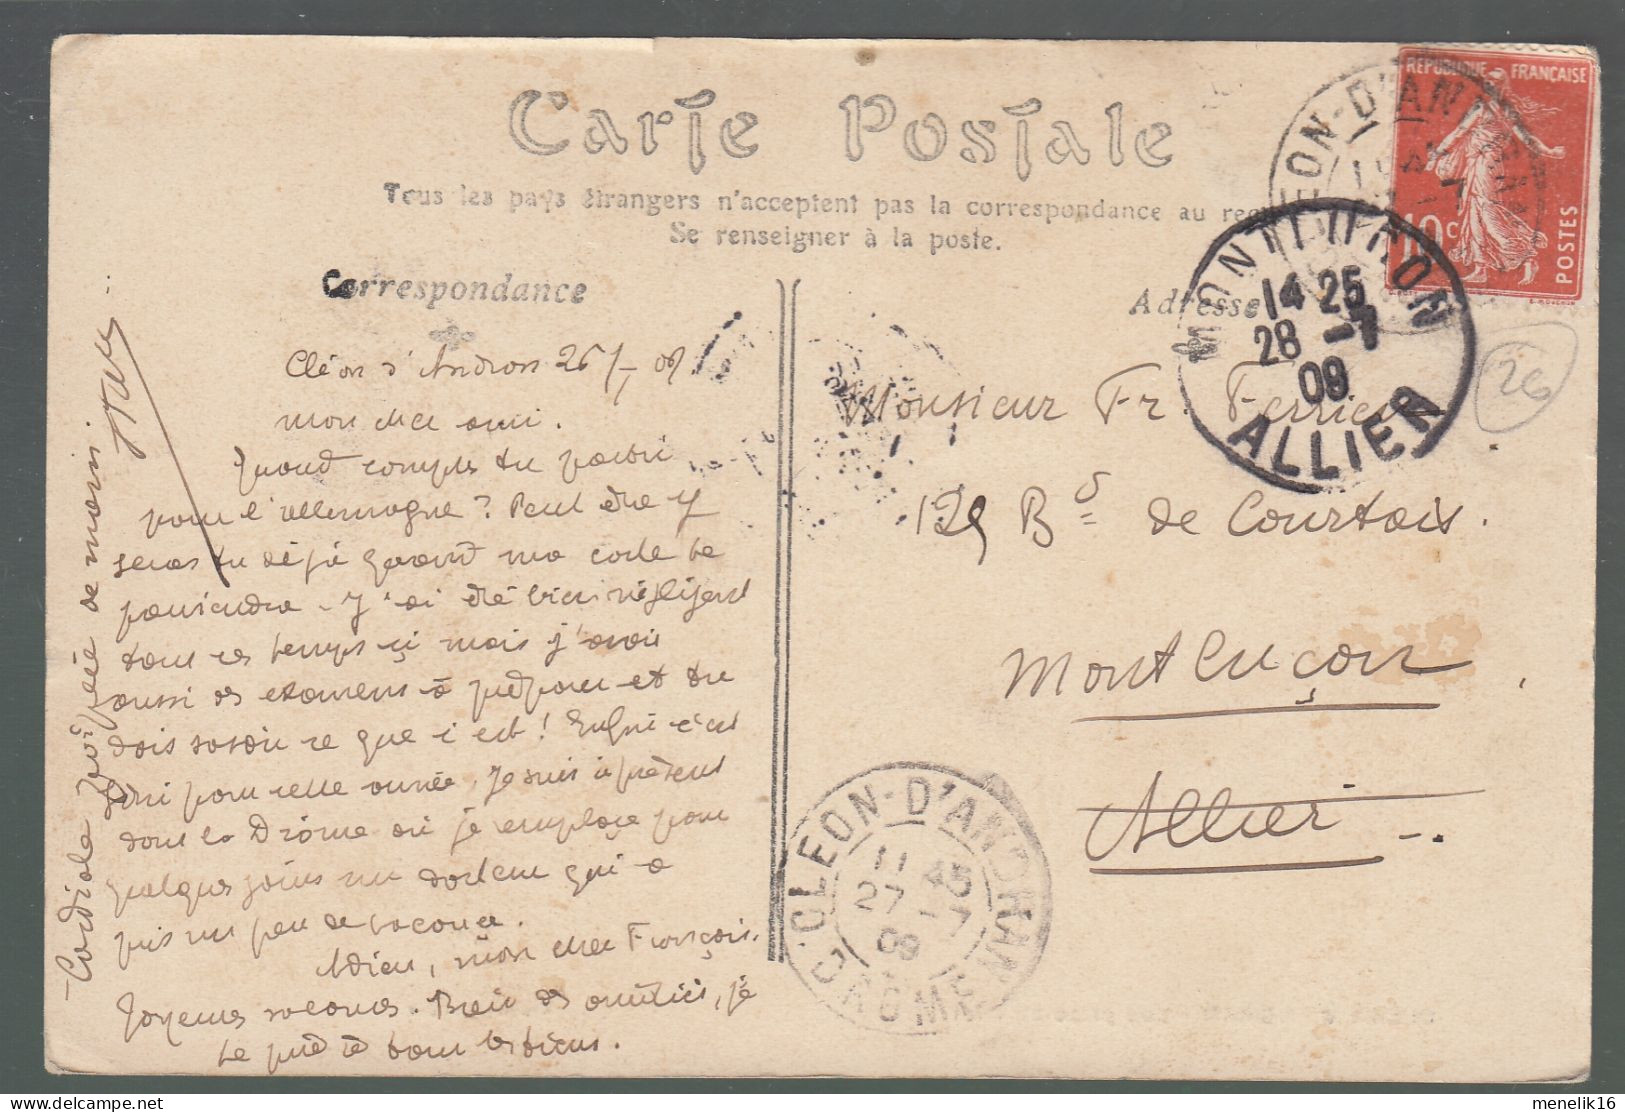 Carte Postale
Tous les pays étrangers n'acceptent pas la correspondance au
Se renseigner à la poste.
Correspondance
Cléon d'Andron 26/7 09
mon cher ami.
quand comptes tu partir
pour l'allemagne? Peut être y
seras tu déjà quand ma carte te
parviendra. J'ai été bien négligent
tous ces temps çi mais j'avais
aussi des examens à préparer et tu
dois savoir ce que c'est! Enfin c'est
fini pour cette année. Je suis à présent
dans la Drôme où je remplace pour
quelques jours un docteur qui a
pris un peu de vacances.
Adieu, mon cher François.
Joyeuses vacances. Bien des amitiés, je
te
Cordiale poignée de main.
Adresse
Monsieur Fr. Ferrier
129 Bd de Courtais.
Montluçon
Allier
REPUBLIQUE FRANÇAISE
10c
POSTES
EON-D'AN
MONTLUÇON
14 25
28 -7
09
ALLIER
26
CLEON-D'ANDRAN
11 45
27 -7
09
DROME
menelik16